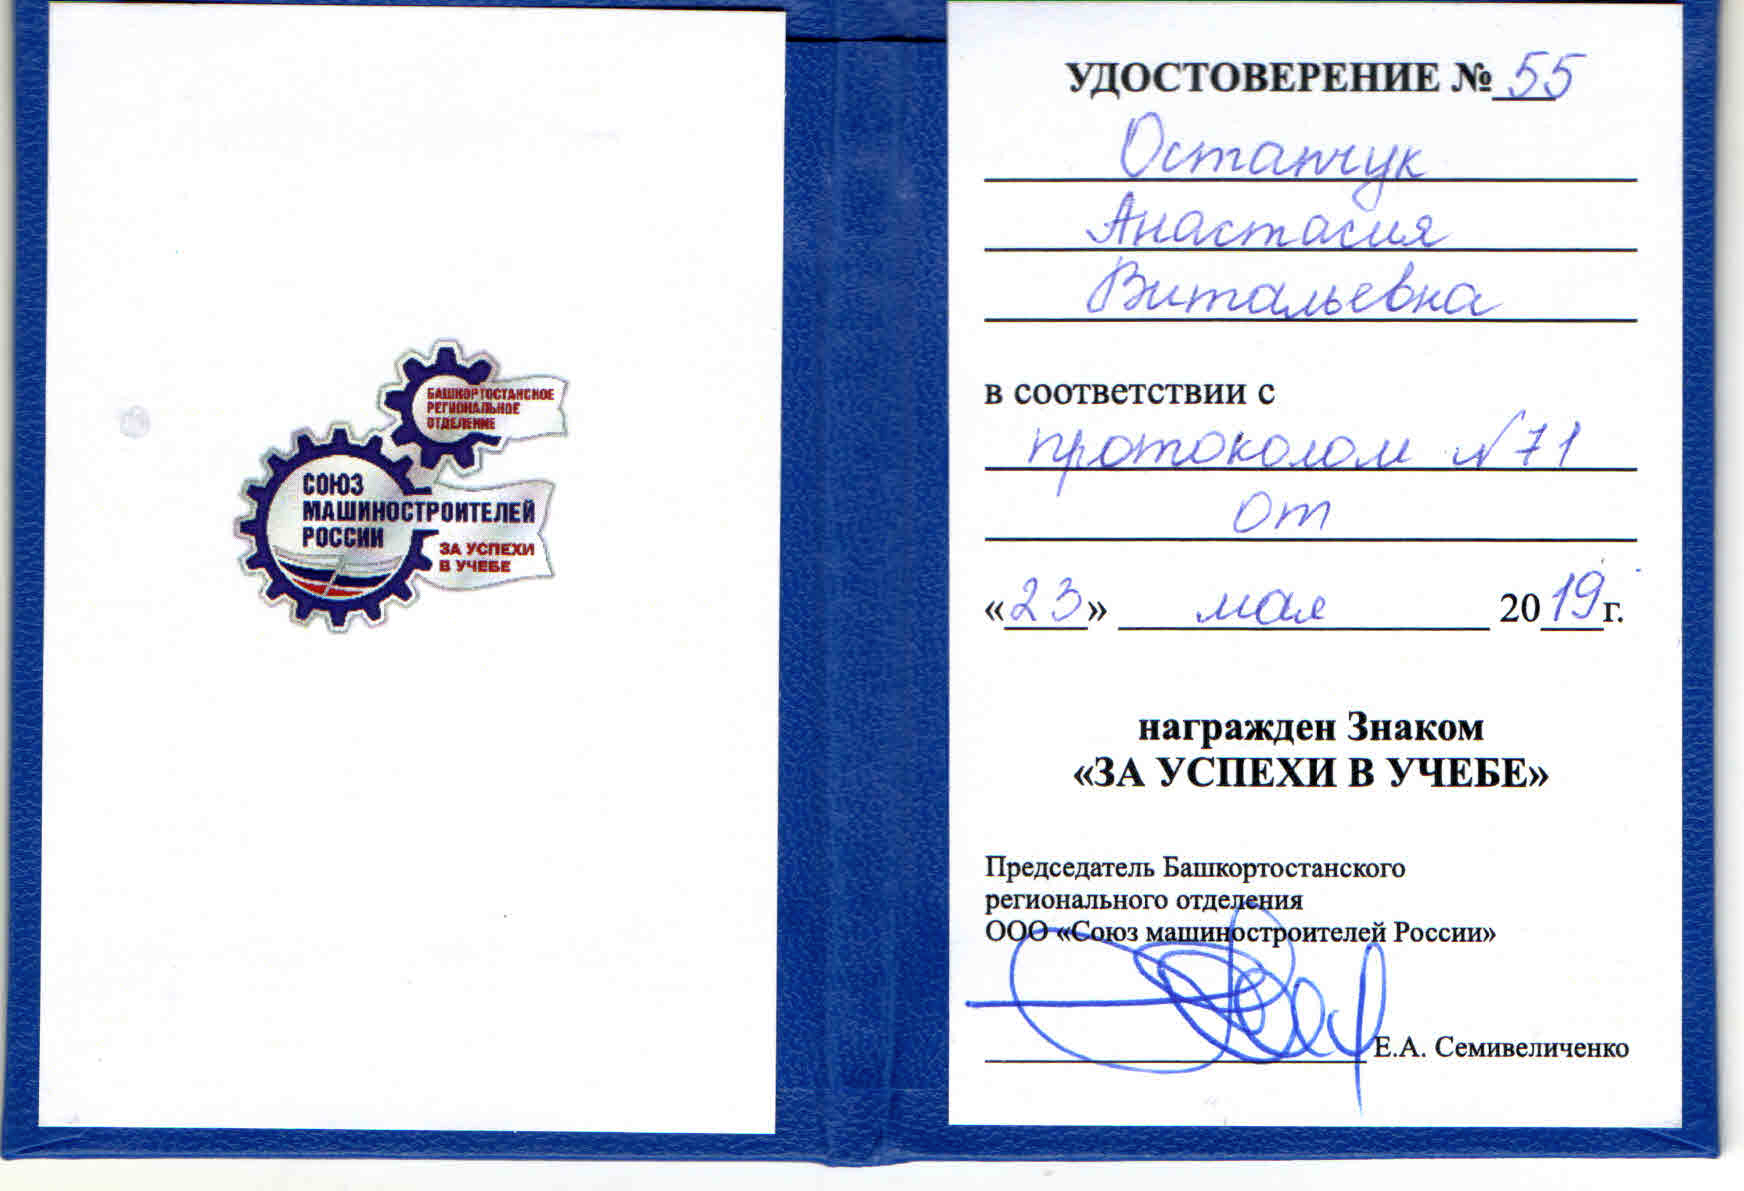 БАШКОРТОСТАНСКОЕ
РЕГИОНАЛЬНОЕ
ОТДЕЛЕНИЕ
СОЮЗ
МАШИНОСТРОИТЕЛЕЙ
РОССИИ
ЗА УСПЕХИ
В УЧЕБЕ
УДОСТОВЕРЕНИЕ № 55
Остапчук
Анастасия
Витальевна
в соответствии с
протоколом №71
от
«23» мая 2019 г.
награжден Знаком
«ЗА УСПЕХИ В УЧЕБЕ»
Председатель Башкортостанского
регионального отделения
ООО «Союз машиностроителей России»
Е.А. Семивеличенко